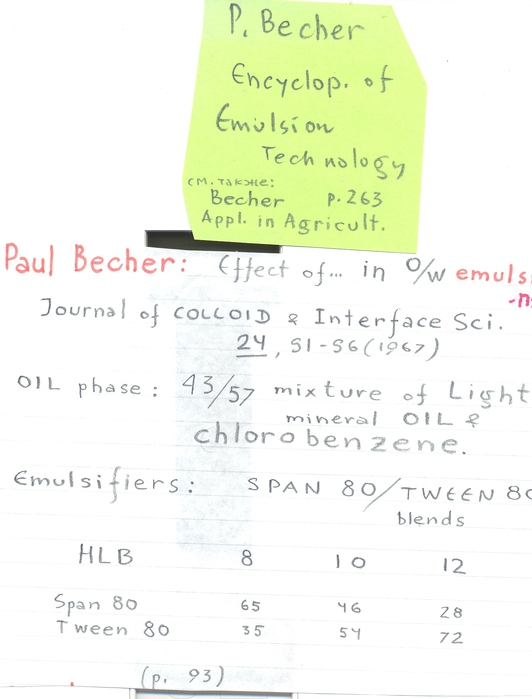 P. Becher
Encyclop. of
Emulsion
Technology
см. также:
Becher p. 263
Appl. in Agricult.
Paul Becher: Effect of... in O/W emuls
-n
Journal of COLLOID & Interface Sci.
24, 91-96 (1967)
OIL phase: 43/57 mixture of Light
mineral OIL &
chlorobenzene.
Emulsifiers: SPAN 80/TWEEN 80
blends
HLB 8 10 12
Span 80 65 46 28
Tween 80 35 54 72
(p. 93)